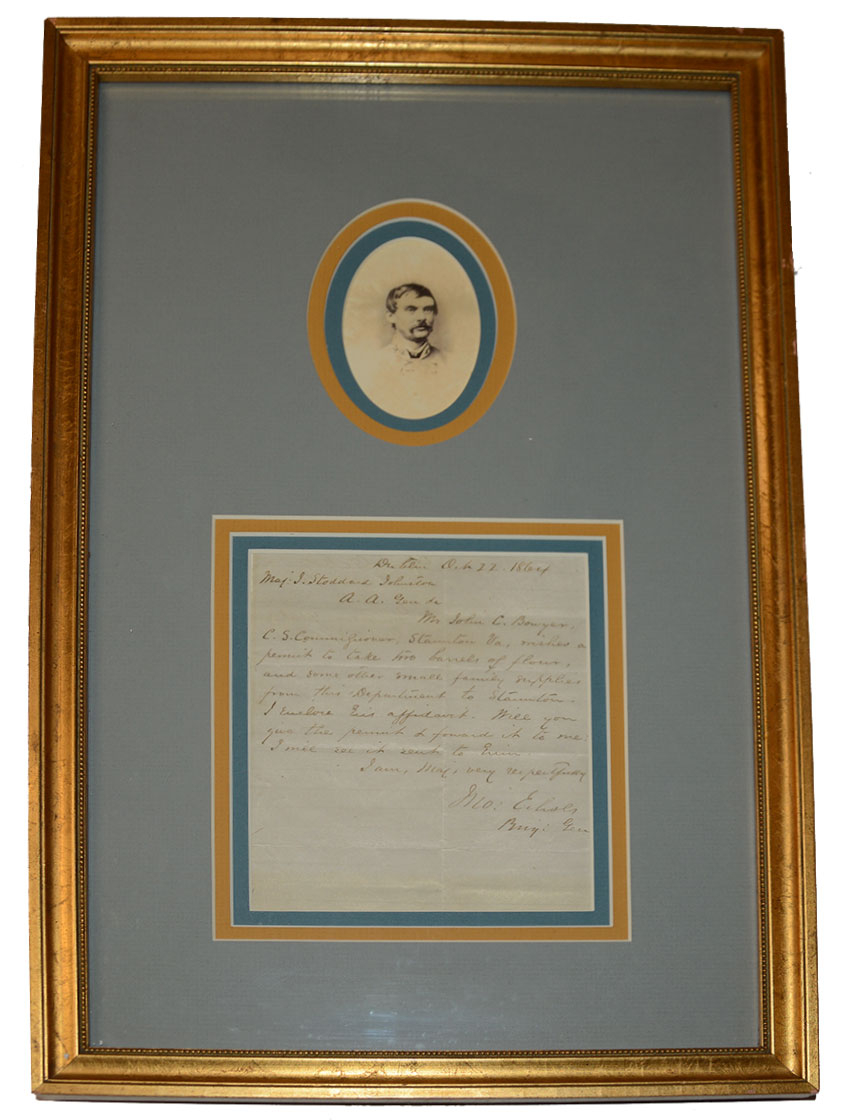 Dublin Oct 22. 1864
Maj: J. Stoddard Johnston
A. A. Gen &c
Mr John C. Bowyer,
C. S. Commissioner, Staunton Va, wishes a
permit to take two barrels of flour,
and some other small family supplies
from this Department to Staunton.
I enclose his affidavit. Will you
give the permit & forward it to me:
I will see it sent to him.
I am, Maj, very respectfully
Jno: Echols
Brig: Gen